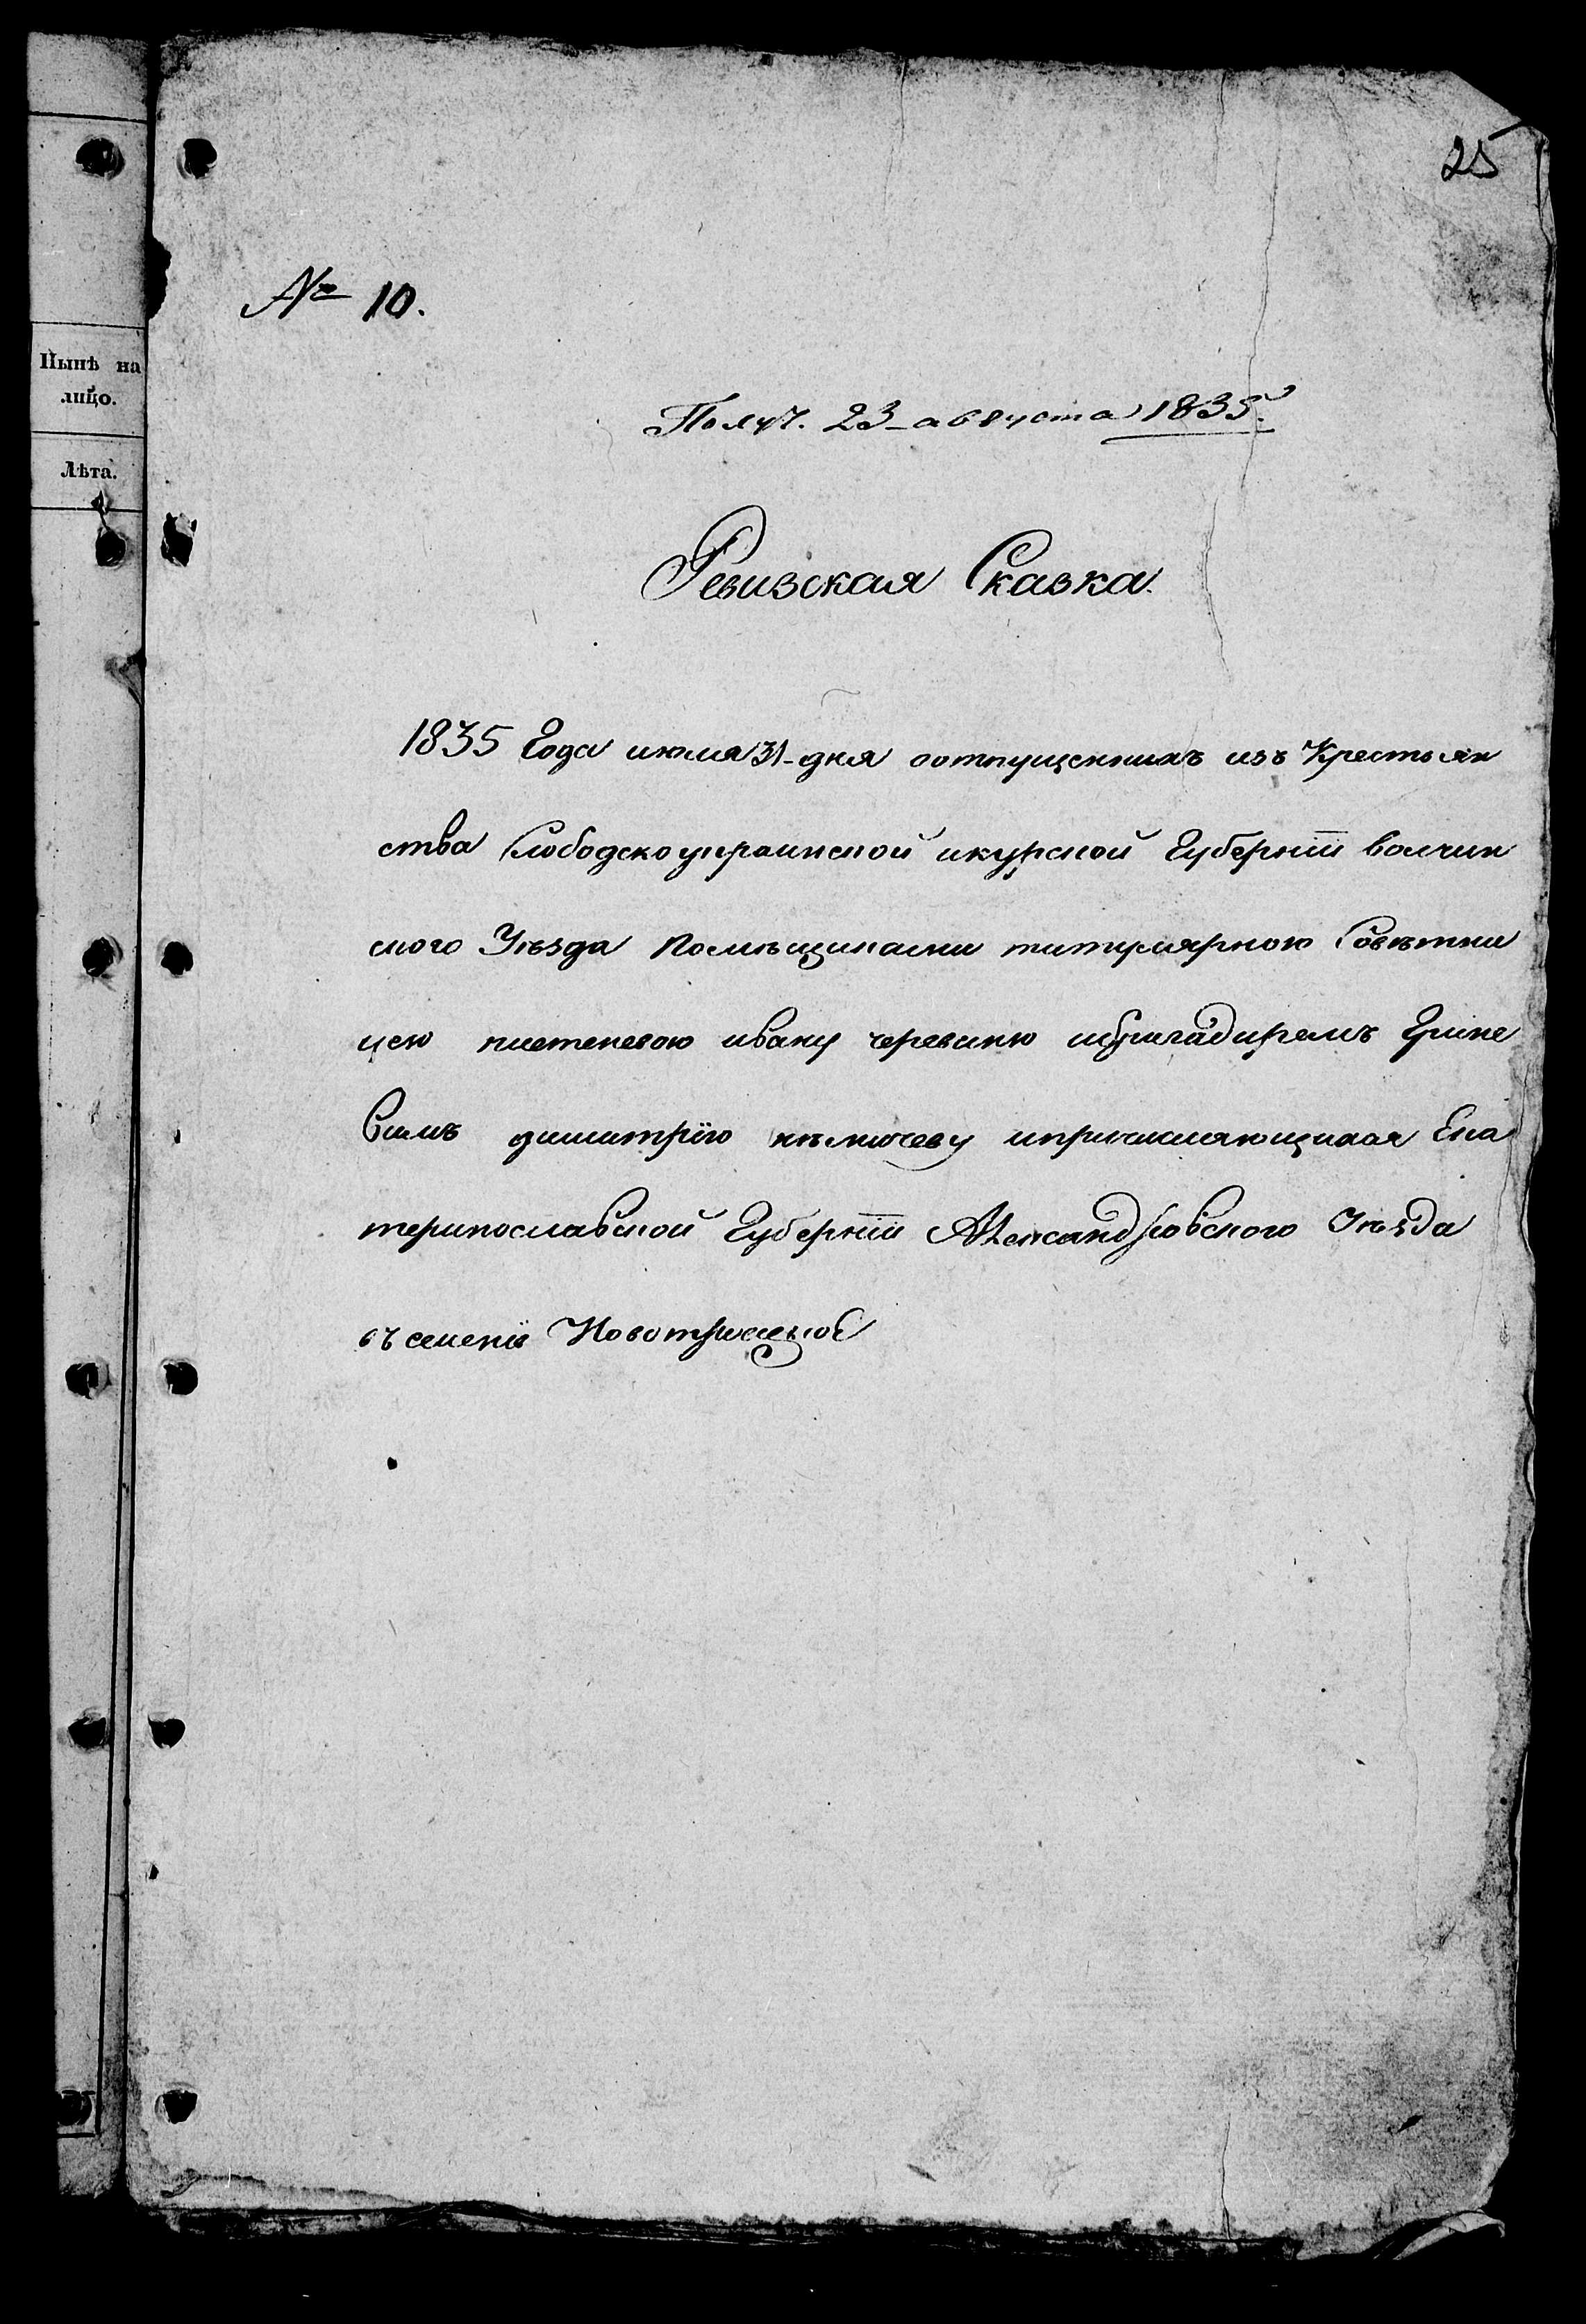 25
№ 10.
Нынѣ на
лицо.
Лѣта.
Получ. 23 августа 1835.
Ревизская Сказка.
1835 Года июля 31 дня оотпущенныхъ изъ Крестьян
ства Слободскоукраинской икурской Губерніи волчан
ского Уѣзда Помѣщиками титулярною Совѣтни
цею ивану черевику ибригадиремъ
димитрію ипричисляющихся Ека
теринославской Губерніи Александровского Уѣзда
въ селеніе